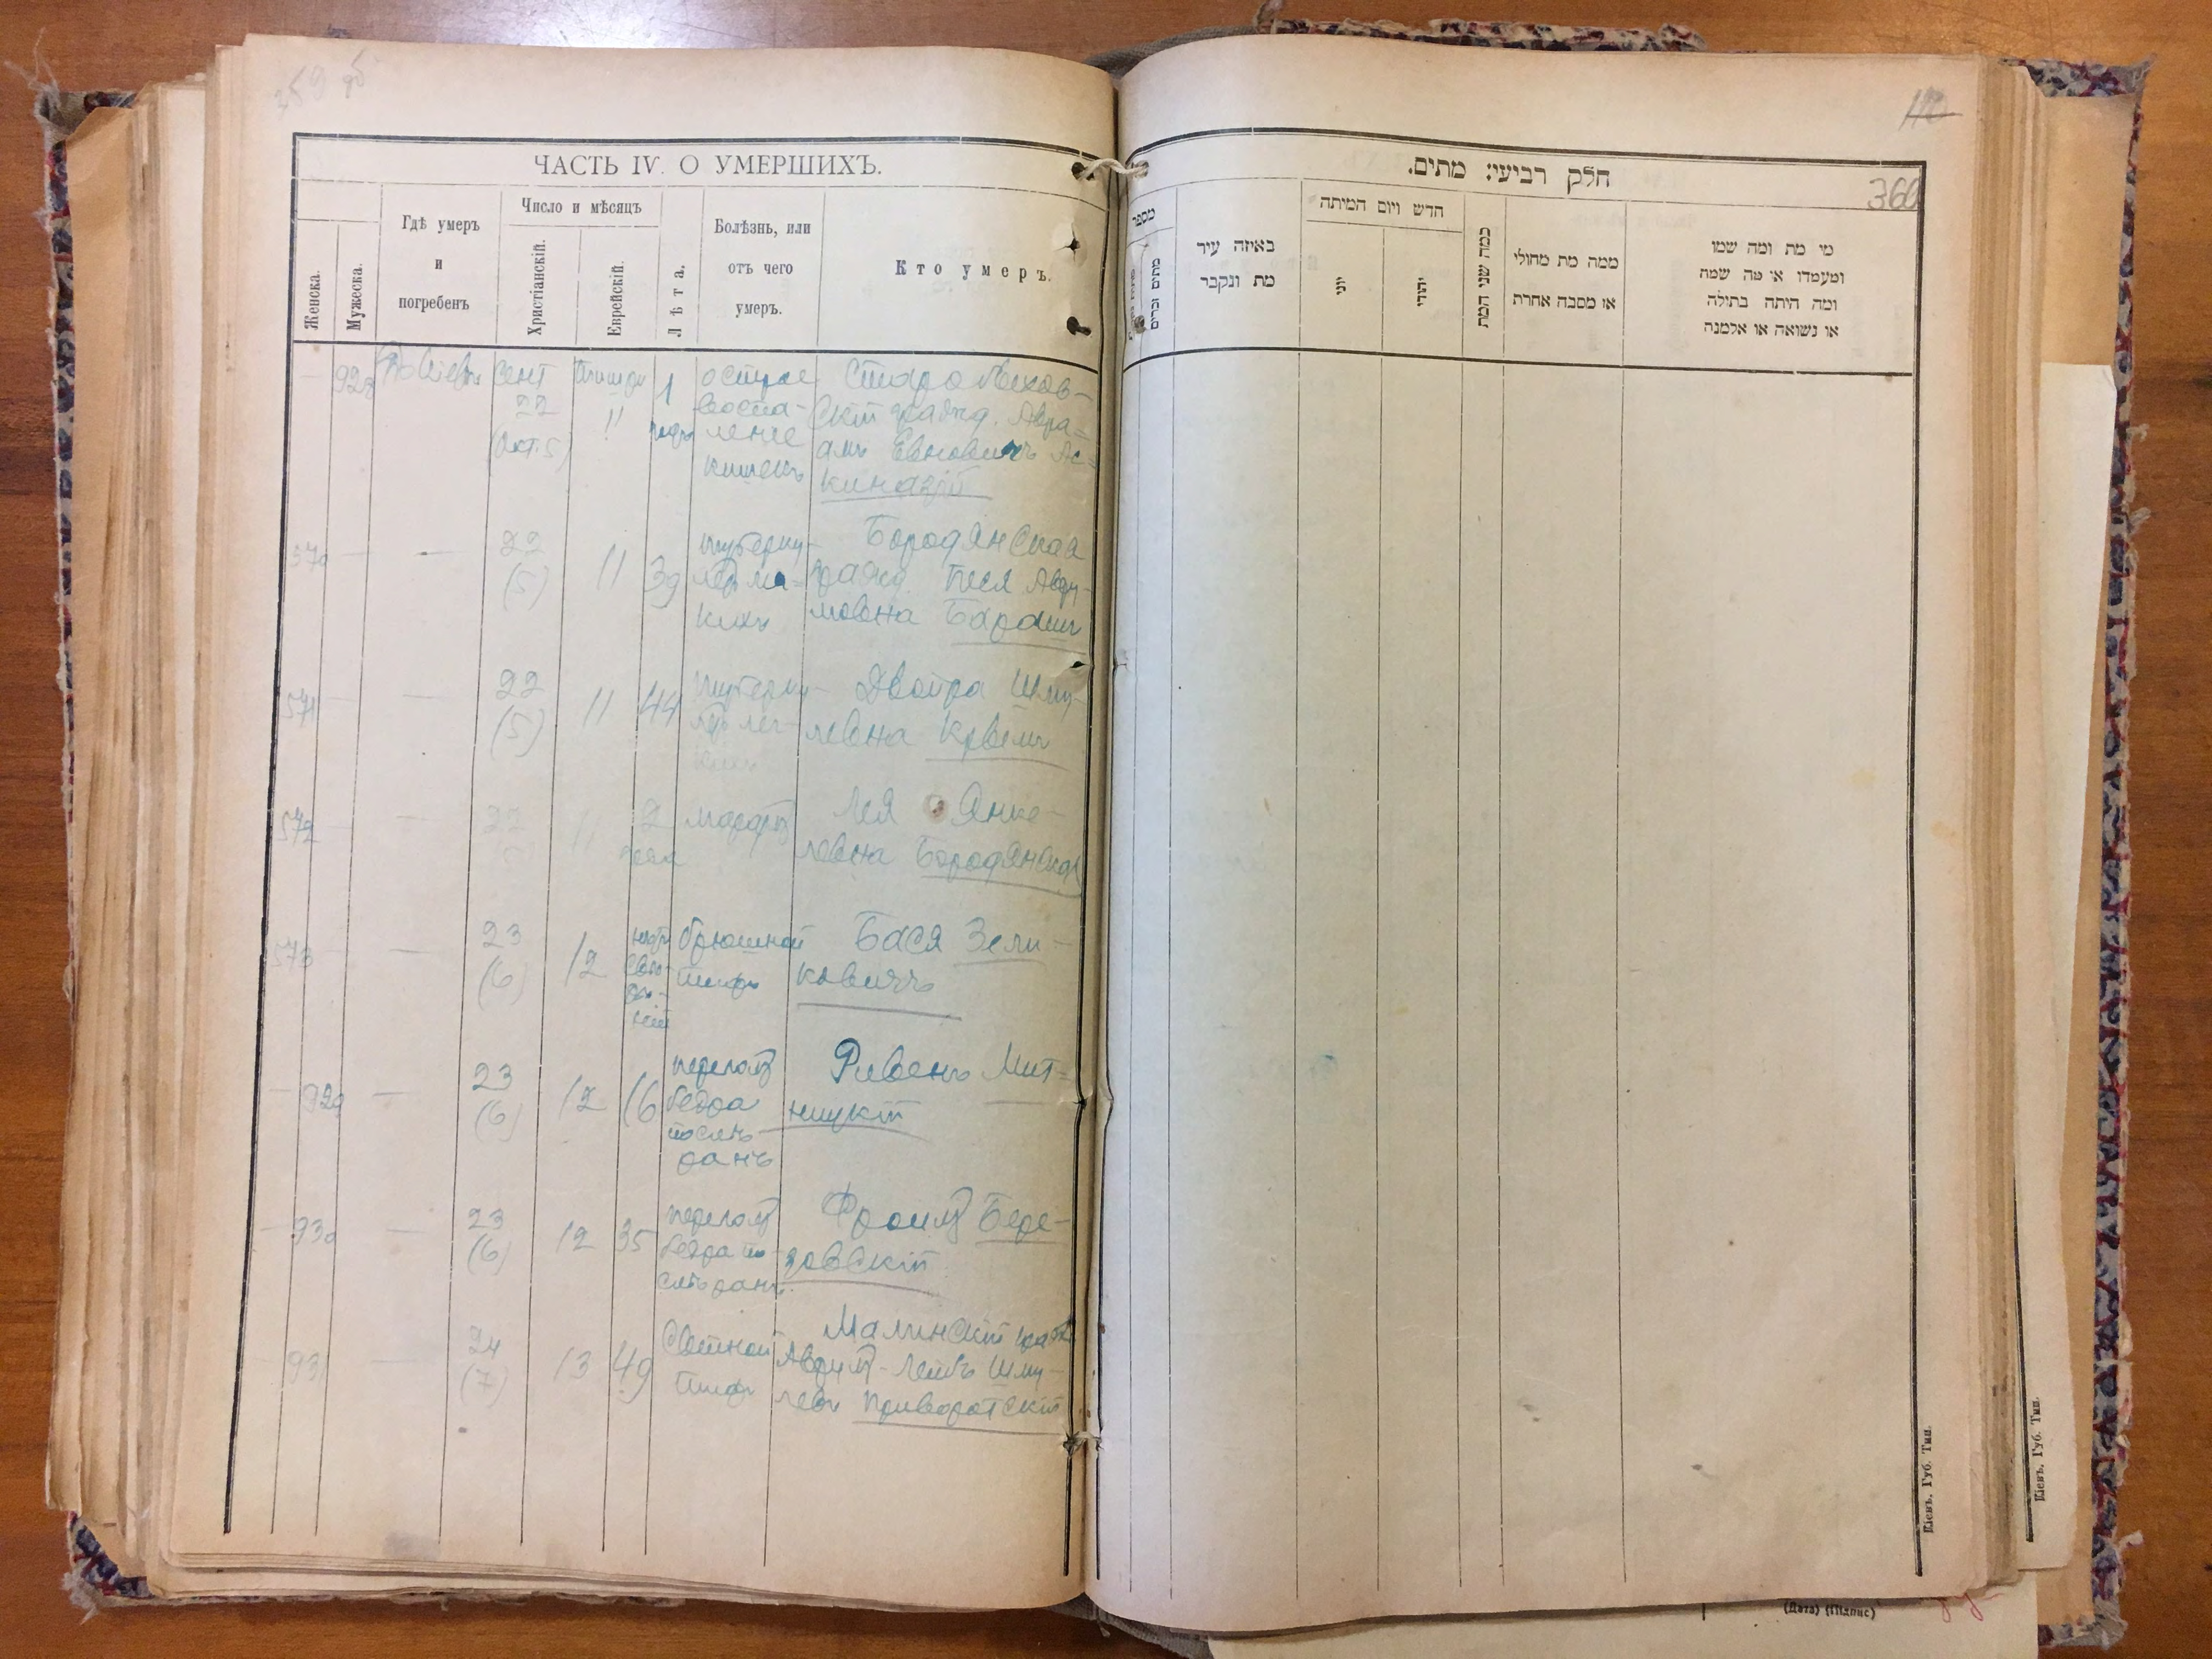 359 об
ЧАСТЬ IV. О УМЕРШИХЪ.
Женска.
Мужеска.
Гдѣ умеръ
и
погребенъ
Число и мѣсяцъ
Христіанскій.
Еврейскій.
Лѣта.
Болѣзнь, или
отъ чего
умеръ.
Кто умеръ.
—
928
Сент
22
(Окт. 5)
Тишри
11
1
годъ
острое
воспа-
леніе
кишекъ
Старобыхов-
скій гражд. Авра=
амъ Евновичъ Ас=
киназій
570
—
—
22
(5)
11
39
туберку-
легкихъ
Бородянская
гражд. Песя Авру-
мовна Барашъ
571
—
—
22
(5)
11
44
туберку-
лег-
кихъ
Двойра Шму-
левна
572
—
—
22
(5)
11
2
Лея Янке-
левна Бородянская
573
—
—
23
(6)
12
брюшной
тифъ
Бася Зели-
ковичъ
—
929
—
23
(6)
12
16
переломъ
бедра
послѣ
ранъ
Рувенъ Мит=
ницкій
—
930
—
23
(6)
12
35
переломъ
бедра по-
слѣ ранъ
Фроимъ Бере-
зовскій
—
931
—
24
(7)
13
49
Сыпной
тифъ
Малинскій гражд
Аврумъ-Лейбъ Шму-
левъ Приворотскій
110
360
חלק רביעי: מתים.
מספר
מתים זכרים
באיזה עיר
מת ונקבר
חדש ויום המיתה
יוני
יהודי
כמה שני המת
ממה מת מחולי
או מסבה אחרת
מי מת ומה שמו
ומעמדו או מה שמה
ומה היתה בתולה
או נשואה או אלמנה
Кіевъ. Губ. Тип.
Кіевъ. Губ. Тип.
(Дата) (Підпис)